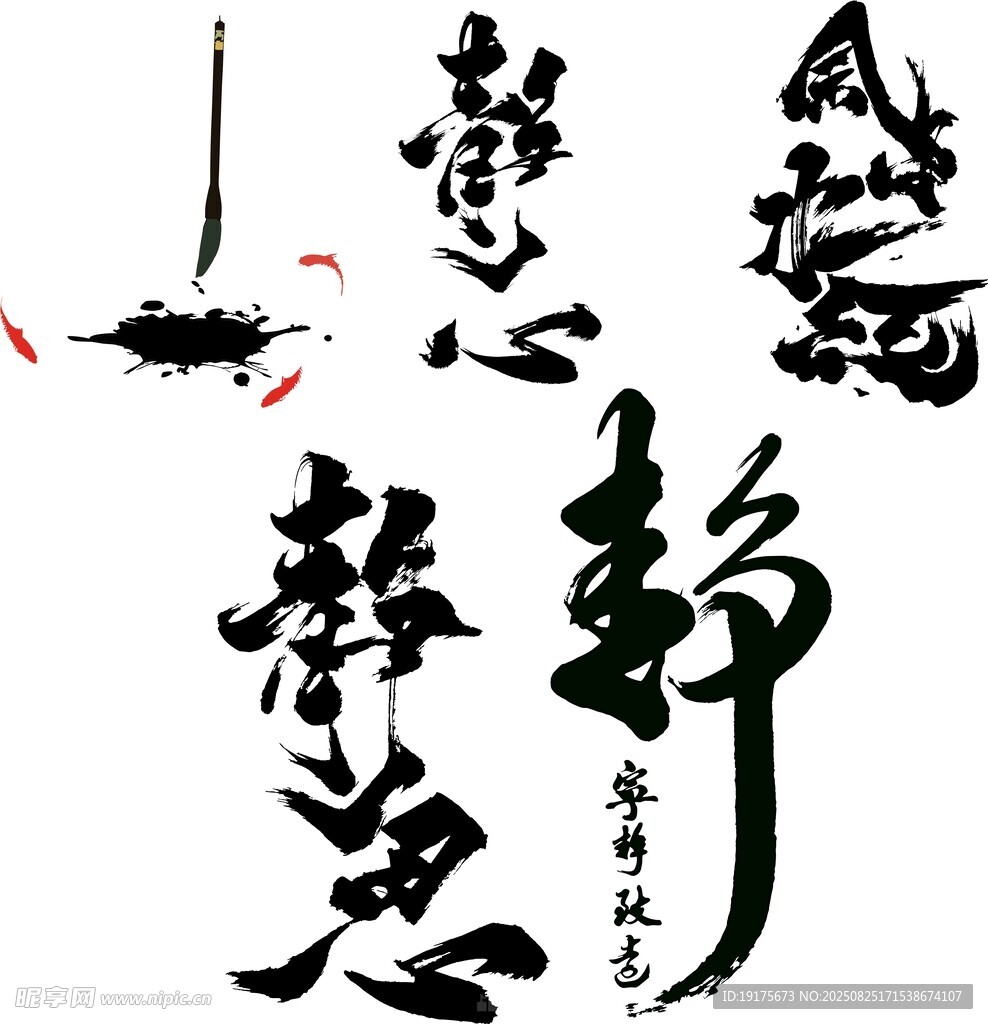 静心
風生水起
静思
静
宁静致远
昵享网 www.nipic.cn
ID:19175673 NO:20250825171538674107